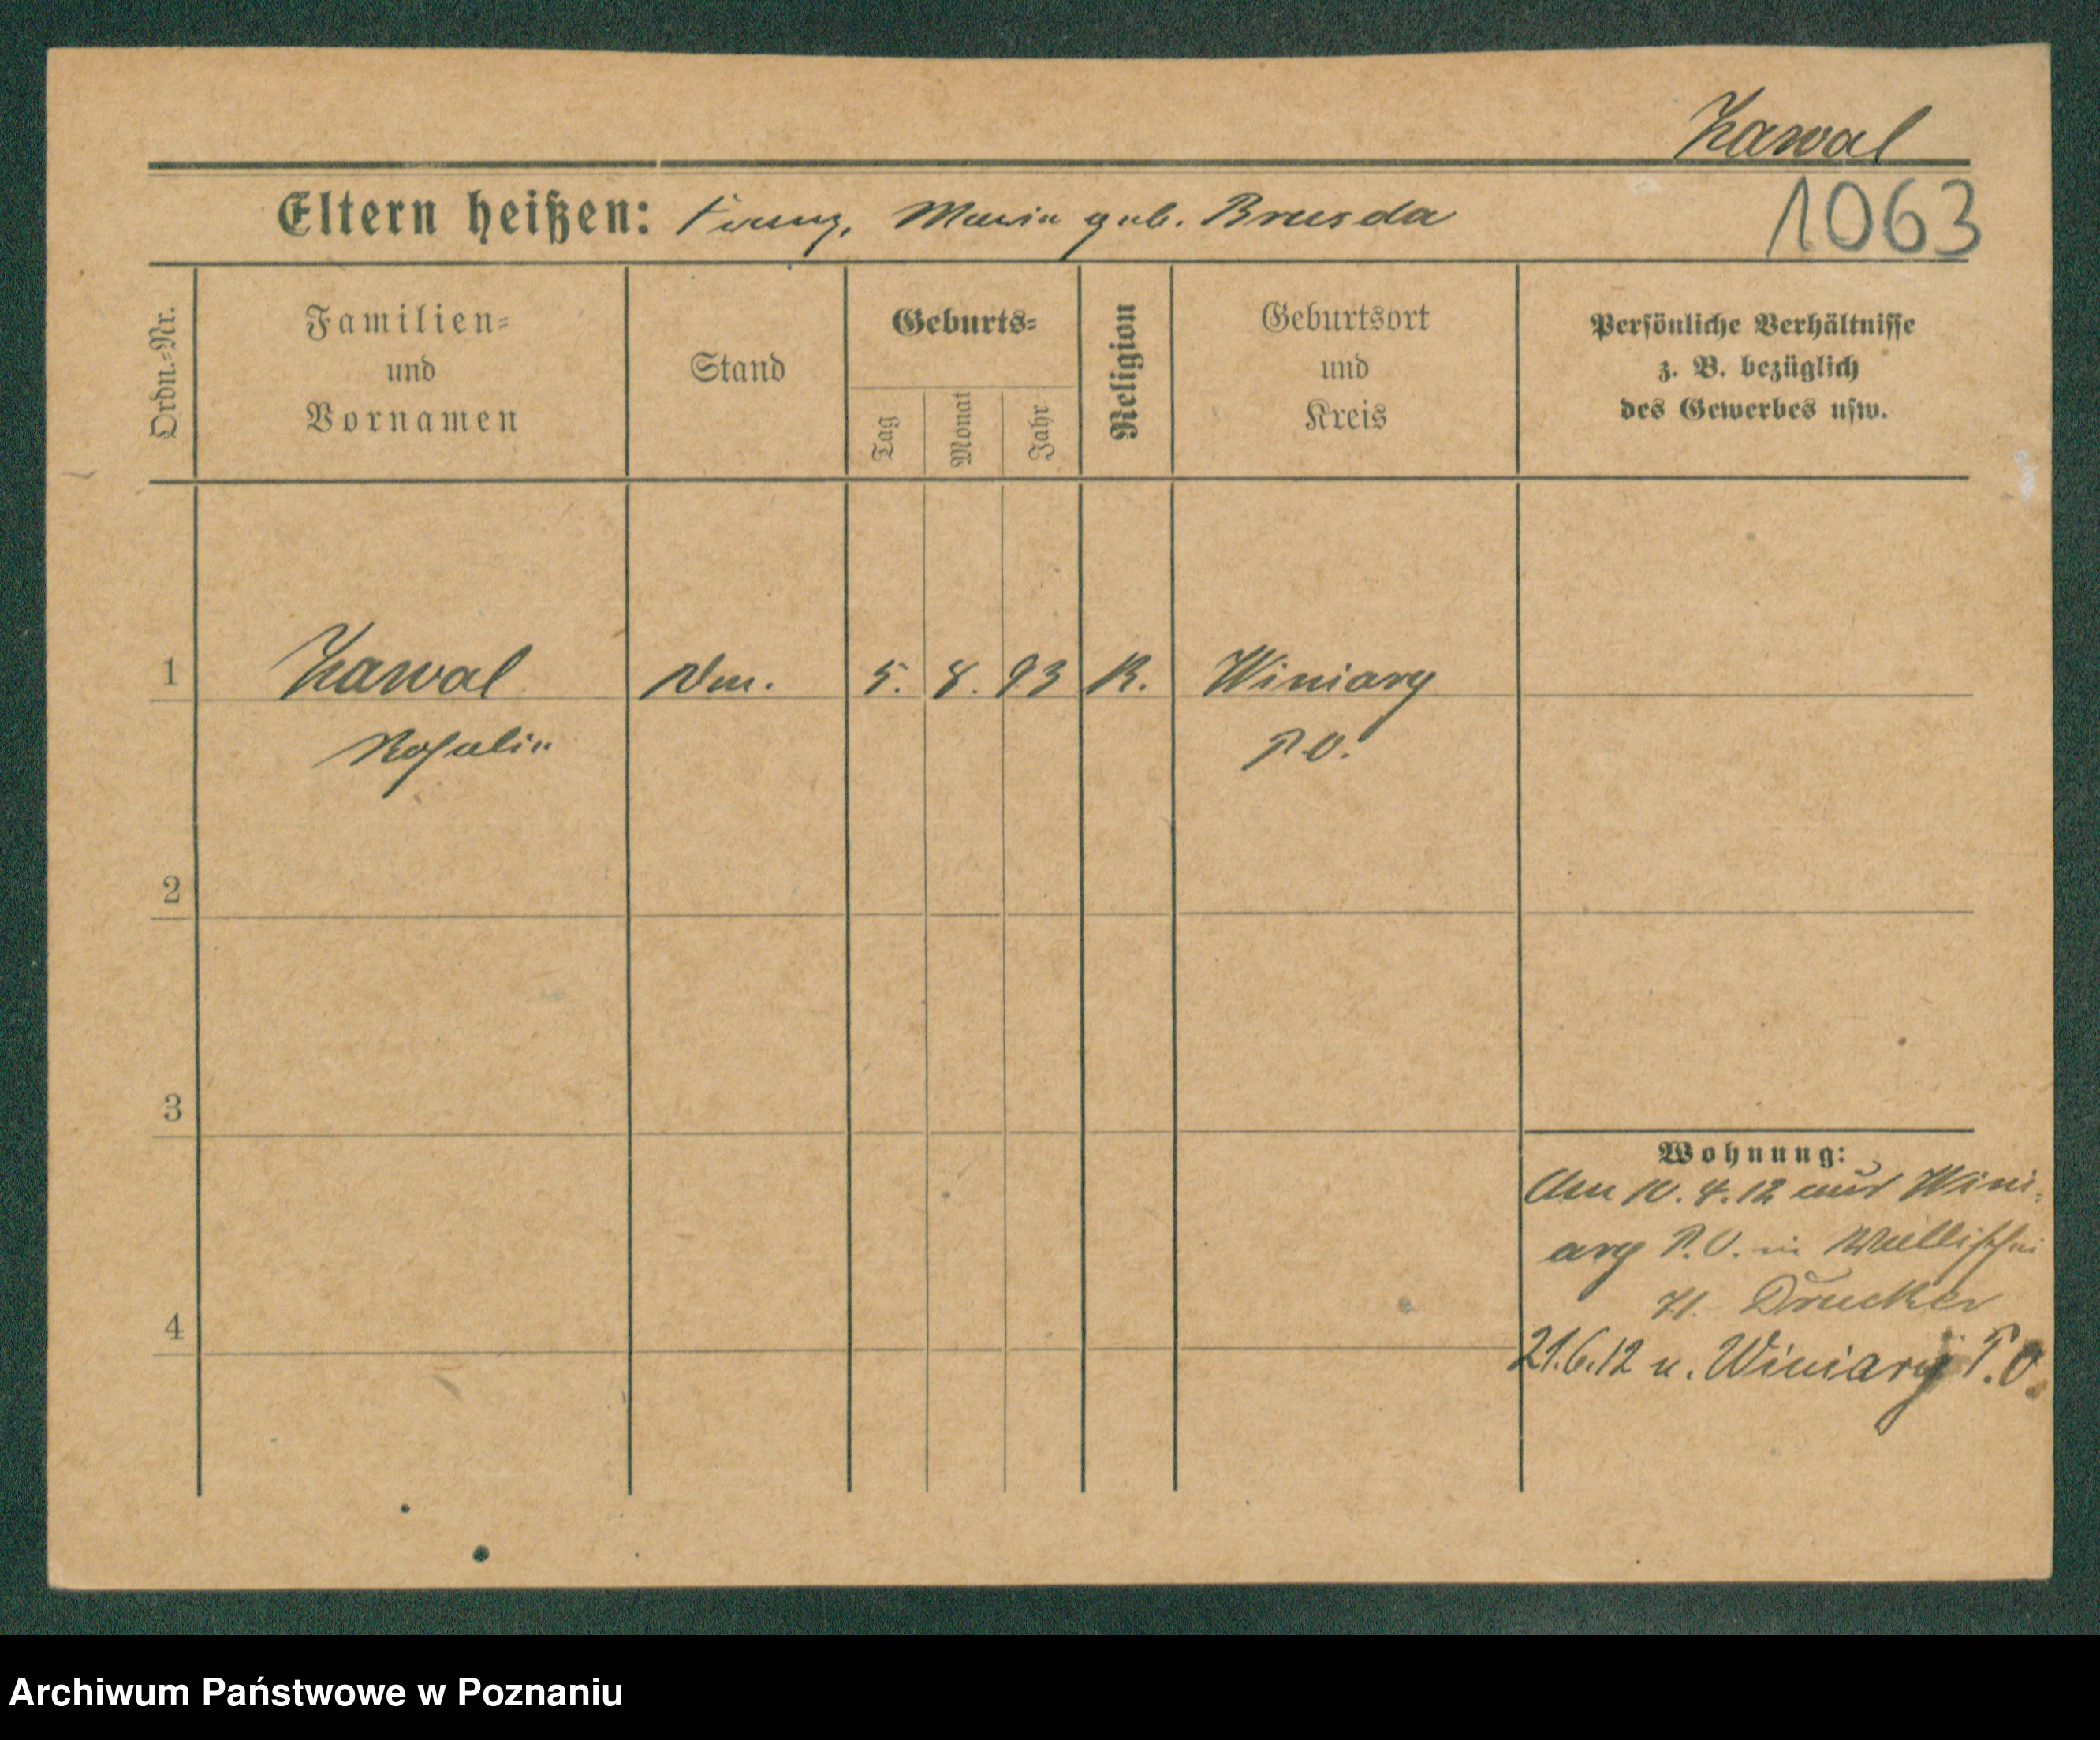 Kawal
1063
Eltern heißen: Franz, Maria geb. Brusda
Ordn.-Nr.
Familien-
und
Vornamen
Stand
Geburts-
Tag
Monat
Jahr
Religion
Geburtsort
und
Kreis
Persönliche Verhältnisse
z. B. bezüglich
des Gewerbes usw.
1 Kawal 5. 8. 93 K. Winiary
Rosalia P.O.
2
3
4
Wohnung:
Am 10.4.12 aus Wini-
ary P.O. in Wallischei
Drucker
21.6.12 n. Winiary P.O.
Archiwum Państwowe w Poznaniu